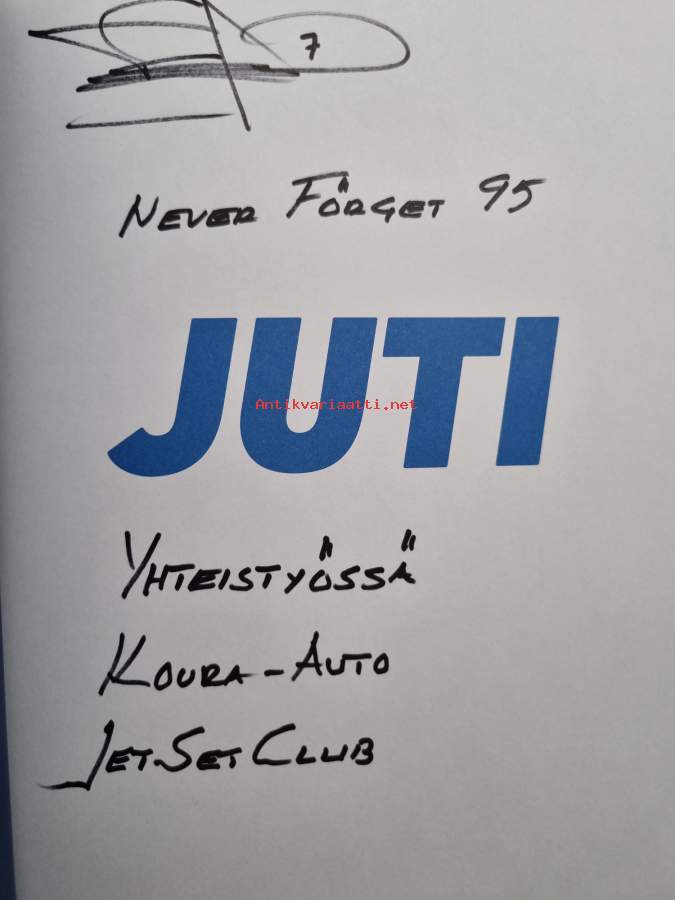 7
NEVER FÖRGET 95
JUTI
Antikvariaatti.net
YHTEISTYÖSSÄ
KOURA-AUTO
JET-SET CLUB